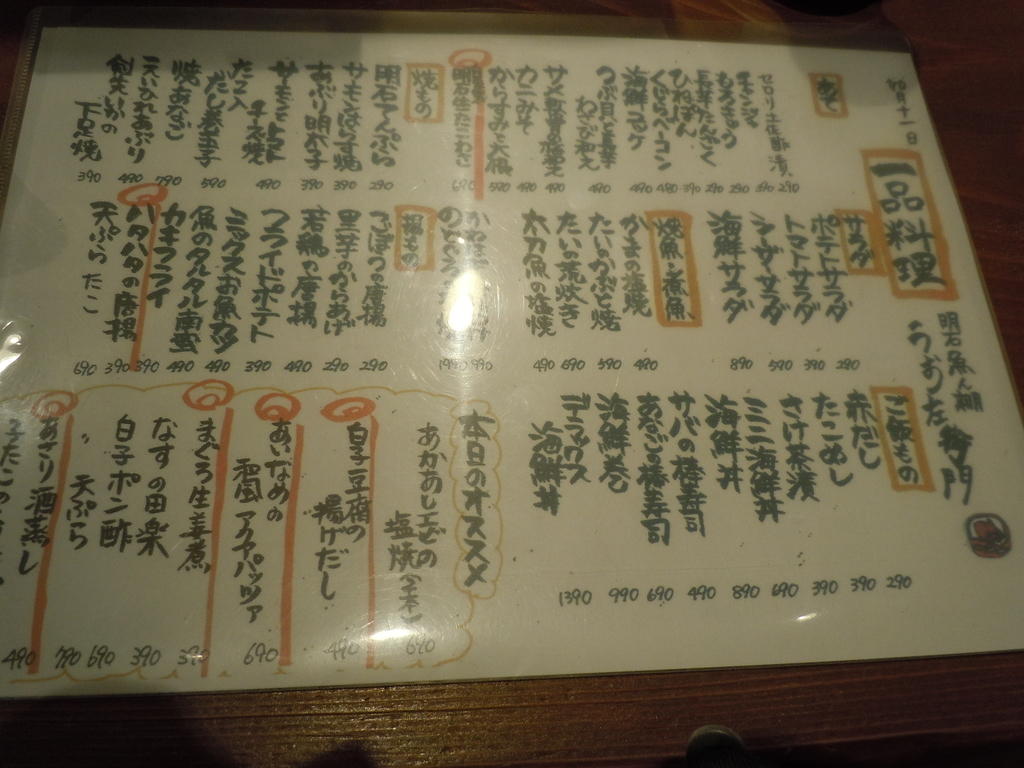 十一日
一品料理
明石魚ん棚
あて
セロリ土佐酢漬
チャンジャ
もろきゅう
長芋たんざく
ひねぽん
くじらベーコン
海鮮ユッケ
つぶ貝と長芋
わさび和え
サメ軟骨梅水
カニみそ
からすみ大根
明石生たこわさ
290
390
290
290
390
480
490
490
490
490
590
690
焼もの
明石てんぷら
サーモンはらす焼
あぶり明太子
サーモントマト
チーズ焼
たこ入
だし巻玉子
焼あなご
天ひれあぶり
剣先いかの
下足焼
290
390
390
490
590
790
490
390
サラダ
ポテトサラダ
トマトサラダ
シーザーサラダ
海鮮サラダ
290
390
590
890
焼魚・煮魚
かまの塩焼
たいのかぶと焼
たいの荒炊き
太刀魚の塩焼
490
590
690
490
990
1990
揚もの
ごぼうの唐揚
里芋のからあげ
若鶏の唐揚
フライドポテト
ミックスお魚カツ
魚のタルタル南蛮
カキフライ
ハタハタの唐揚
天ぷら たこ
290
290
490
390
490
490
390
390
690
ご飯もの
赤だし
たこめし
さけ茶漬
ミニ海鮮丼
海鮮丼
サバの棒寿司
あなご棒寿司
海鮮巻
デラックス
海鮮丼
290
390
390
690
890
490
690
990
1390
本日のオススメ
あかあしエビの
塩焼(一本)
690
白子豆腐の
揚げだし
490
あいなめの
和風アクアパッツァ
690
まぐろ生姜煮
390
なすの田楽
390
白子ポン酢
690
〃 天ぷら
790
あさり酒蒸し
490